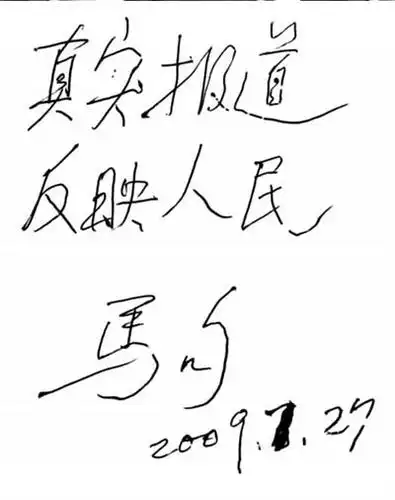 真实报道
反映人民
2009.1.27